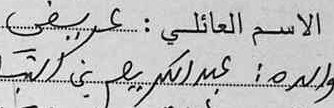 الاسم العائلي : عريضي
والده : عبد الكريم بن